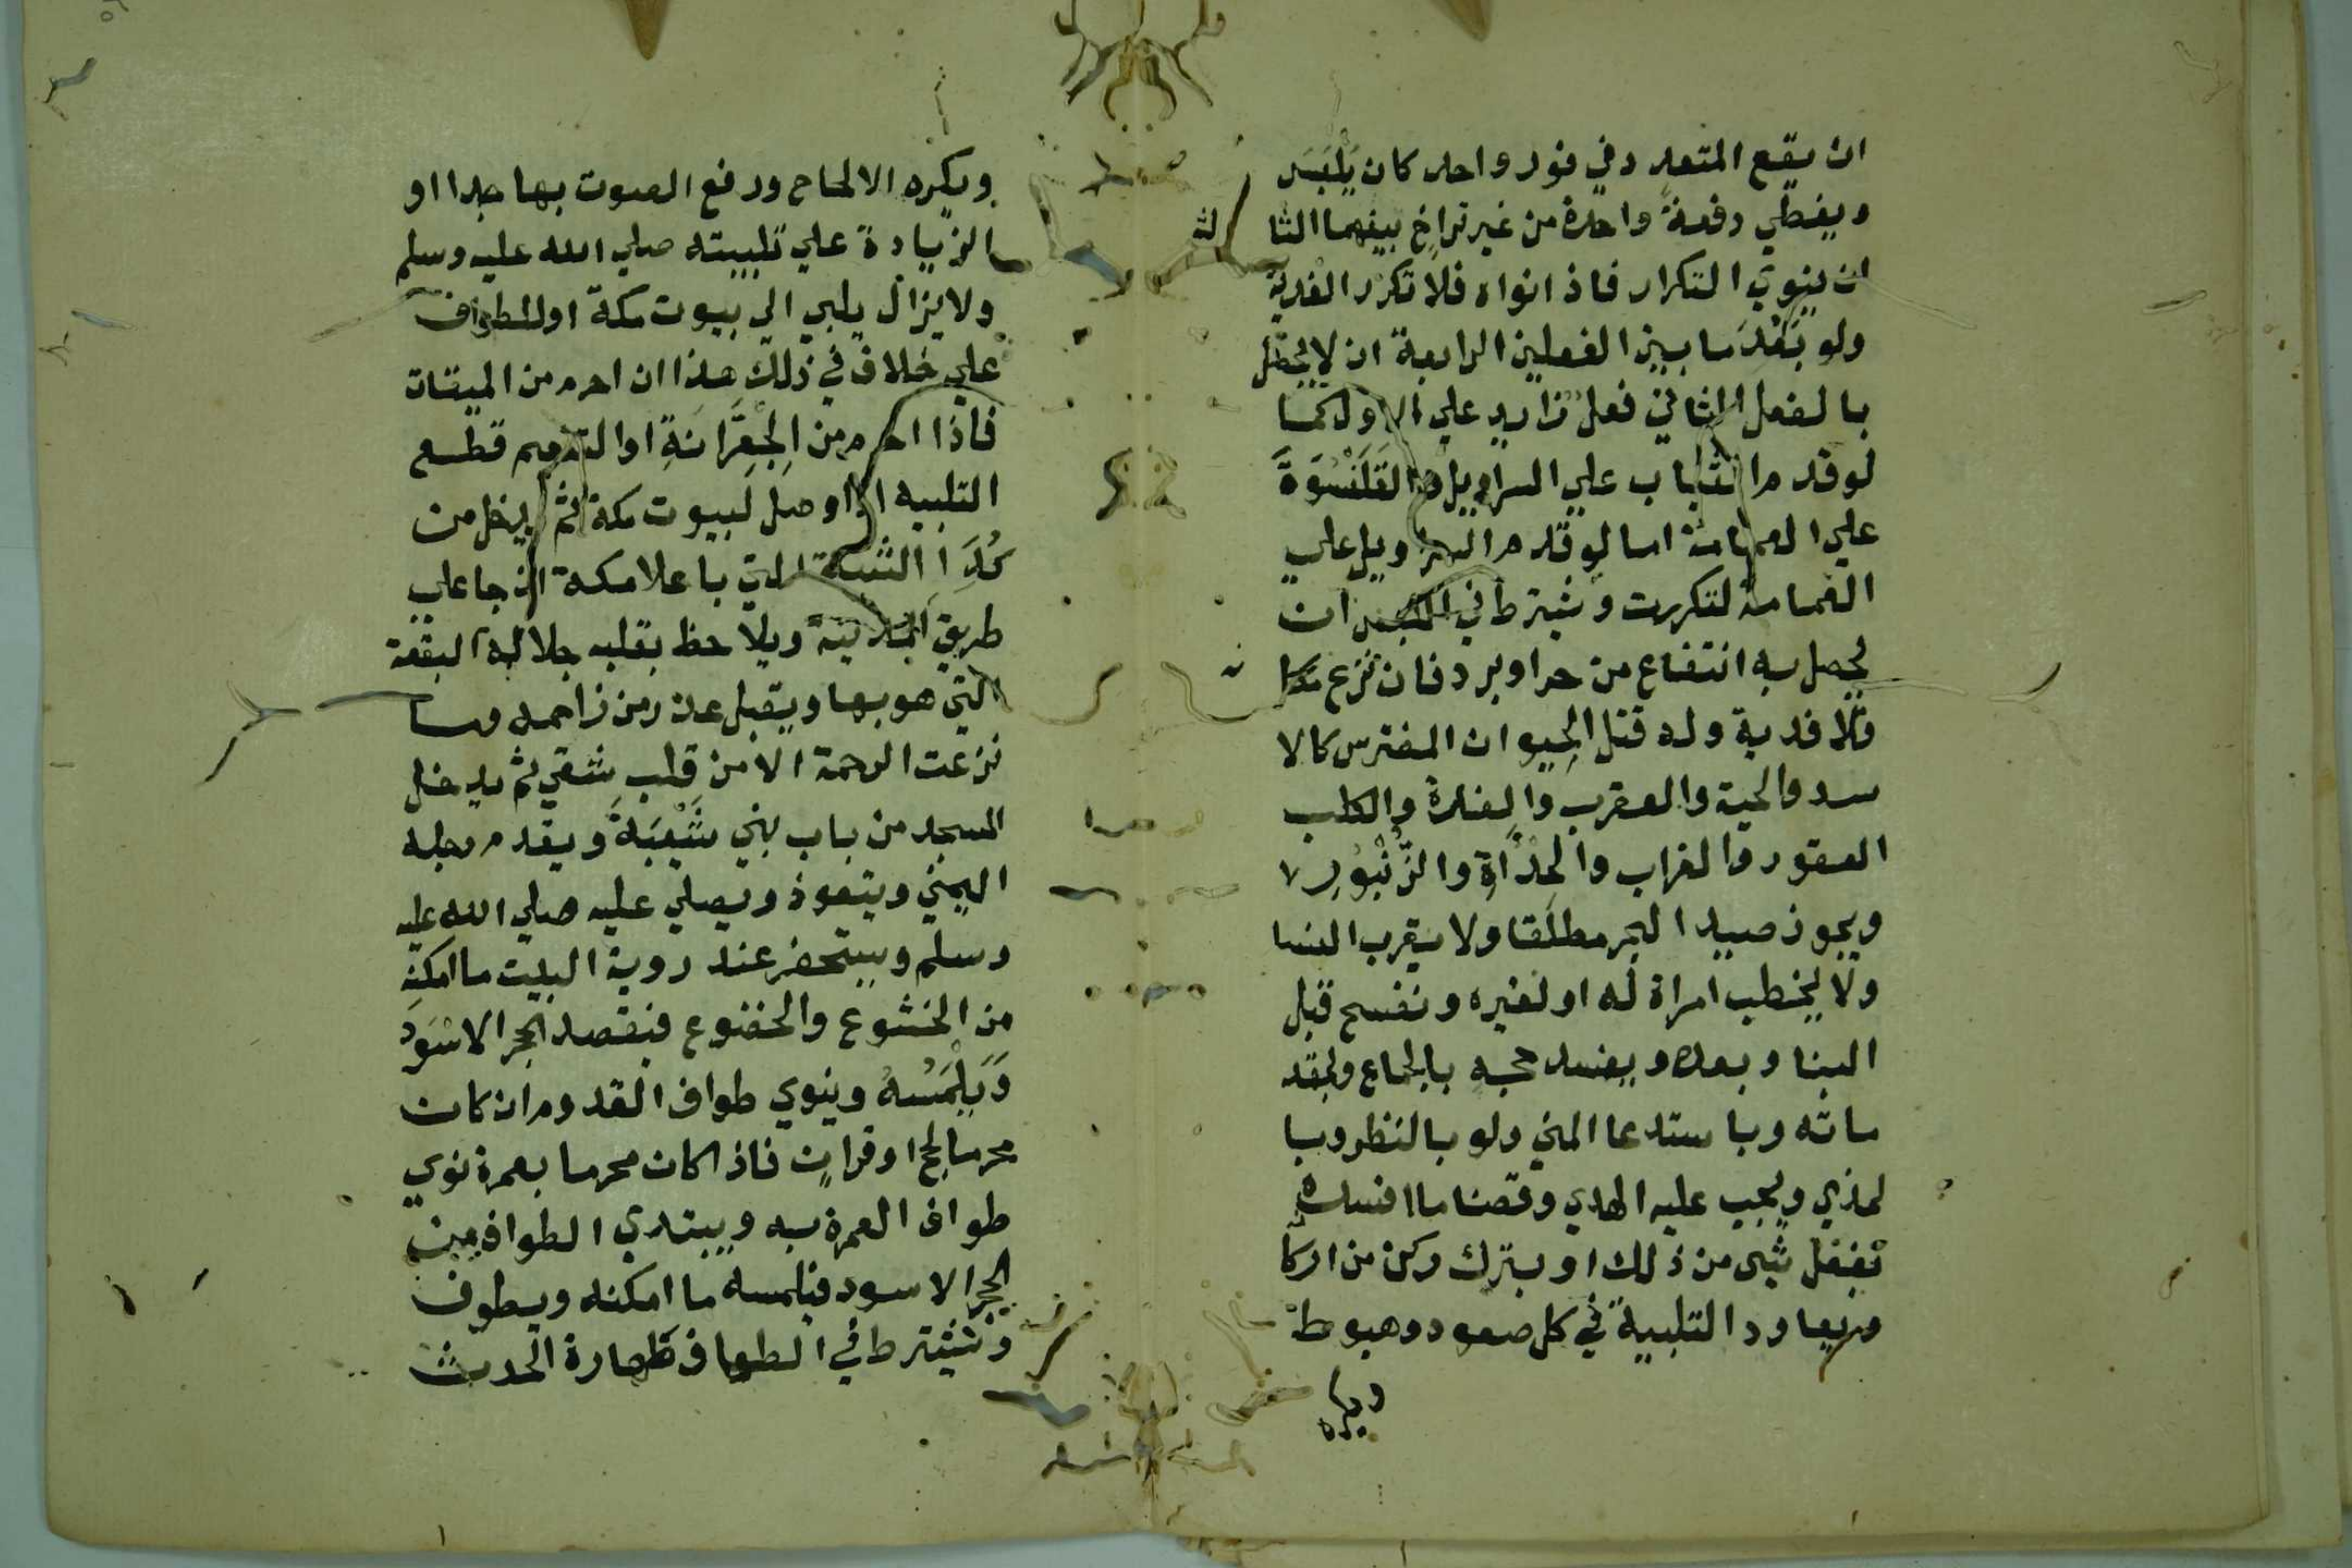 ان يقع المتعدد في فور واحد كان يَلْبَسَ
ويغطي دفعة واحدة من غير تراخ بينهما الثا
لث
ان ينوي التكرار فاذا نواه فلا تكرر الفدية
ولو بَعُدَ ما بين الفعلين الرابعة ان لا يحصل
بالفعل الثاني فعل زايد علي الاول كما
لو قدم الثياب علي السراويل والقَلَنْسُوَةَ
علي العمامة اما لو قدم السراويل علي
الغمامة لتكررت ويشترط في اللبس ان
يحصل به انتفاع من حر او برد فان نزع مكا
نه
فلا فدية وله قتل الحيوان المفترس كالا
سد والحية والعقرب والفارة والكلب
العقور والغراب والحِدَأَة والزُّنْبُورِ
ويجوز صيد البحر مطلقا ولا يقرب النسا
ولا يخطب امراة له او لغيره ونفسح قبل
البنا وبعده ويفسد حجه بالجماع ولمقد
ماته وباستدعا المني ولو بالنظر وبا
لمذي ويجب عليه الهدي وقضا ما افسده
بفعل شي من ذلك او بترك ركن من اركا
نه ويعاود التلبية في كل صعود وهبوط
ويكره
ويكره الالحاح ورفع الصوت بها جدا او
الزيادة علي تلبيته صلي الله عليه وسلم
ولا يزال يلبي الي بيوت مكة او للطواف
علي خلاف في ذلك هذا ان احرم من الميقات
فاذا احرم من الِجْعِرَّانَةِ او التنعيم قطع
التلبيه اذا وصل لبيوت مكة ثم يدخل من
كُدَا الثنية التي باعلا مكة ان جا علي
طريق المدينة ويلاحظ بقلبه جلالة البقعة
التي هو بها ويقبل عذر من زاحمه وما
نزعت الرحمة الا من قلب شقي ثم يدخل
المسجد من باب بني شَيْبَةَ ويقدم رجله
اليمني ويتعوذ ويصلي عليه صلي الله عليه
وسلم ويستحضر عند روية البيت ما امكنه
من الخشوع والخضوع فيقصد الحجر الاسْوَدَ
وَيَلْمَسُهُ وينوي طواف القدوم ان كان
محرما لحج او قران فاذا كان محرما بعمرة نوي
طواف العمرة به ويبتدي الطواف من
الحجر الاسود فيلمسه ما امكنه ويطوف
ويشترط في الطواف طهارة الحدث